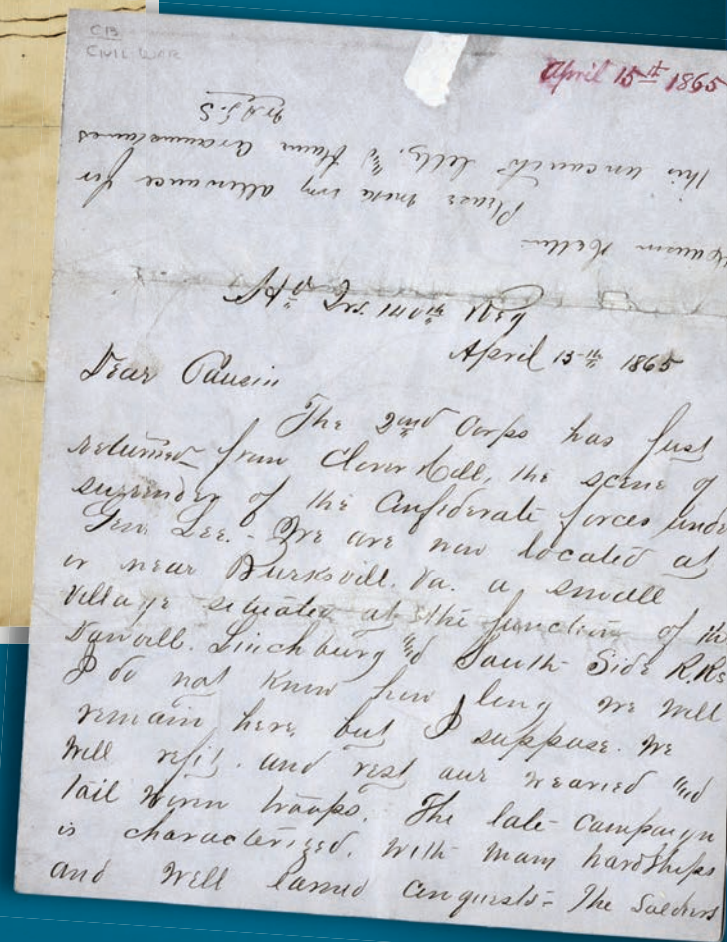 CB
CIVIL WAR
April 15th 1865
Please make my allowance for
this uncouth letter, and blame circumstances
Hd Qrs. 140th Reg
April 15th 1865
Dear Cousin
The 2nd Corps has just
returned from Clover Hill, the scene of
surrender of the Confederate forces unde
Gen. Lee. - We are now located at
or near Burksvill. Va. a small
village situated at the junction of the
Danvill. Linchburg and South Side R.Rs
I do not know how long we will
remain here, but I suppose. We
will refit. and rest our wearied and
toil worn troops. The late campaign
is characterized. with many hardships
and well earned conquests - The Soldiers